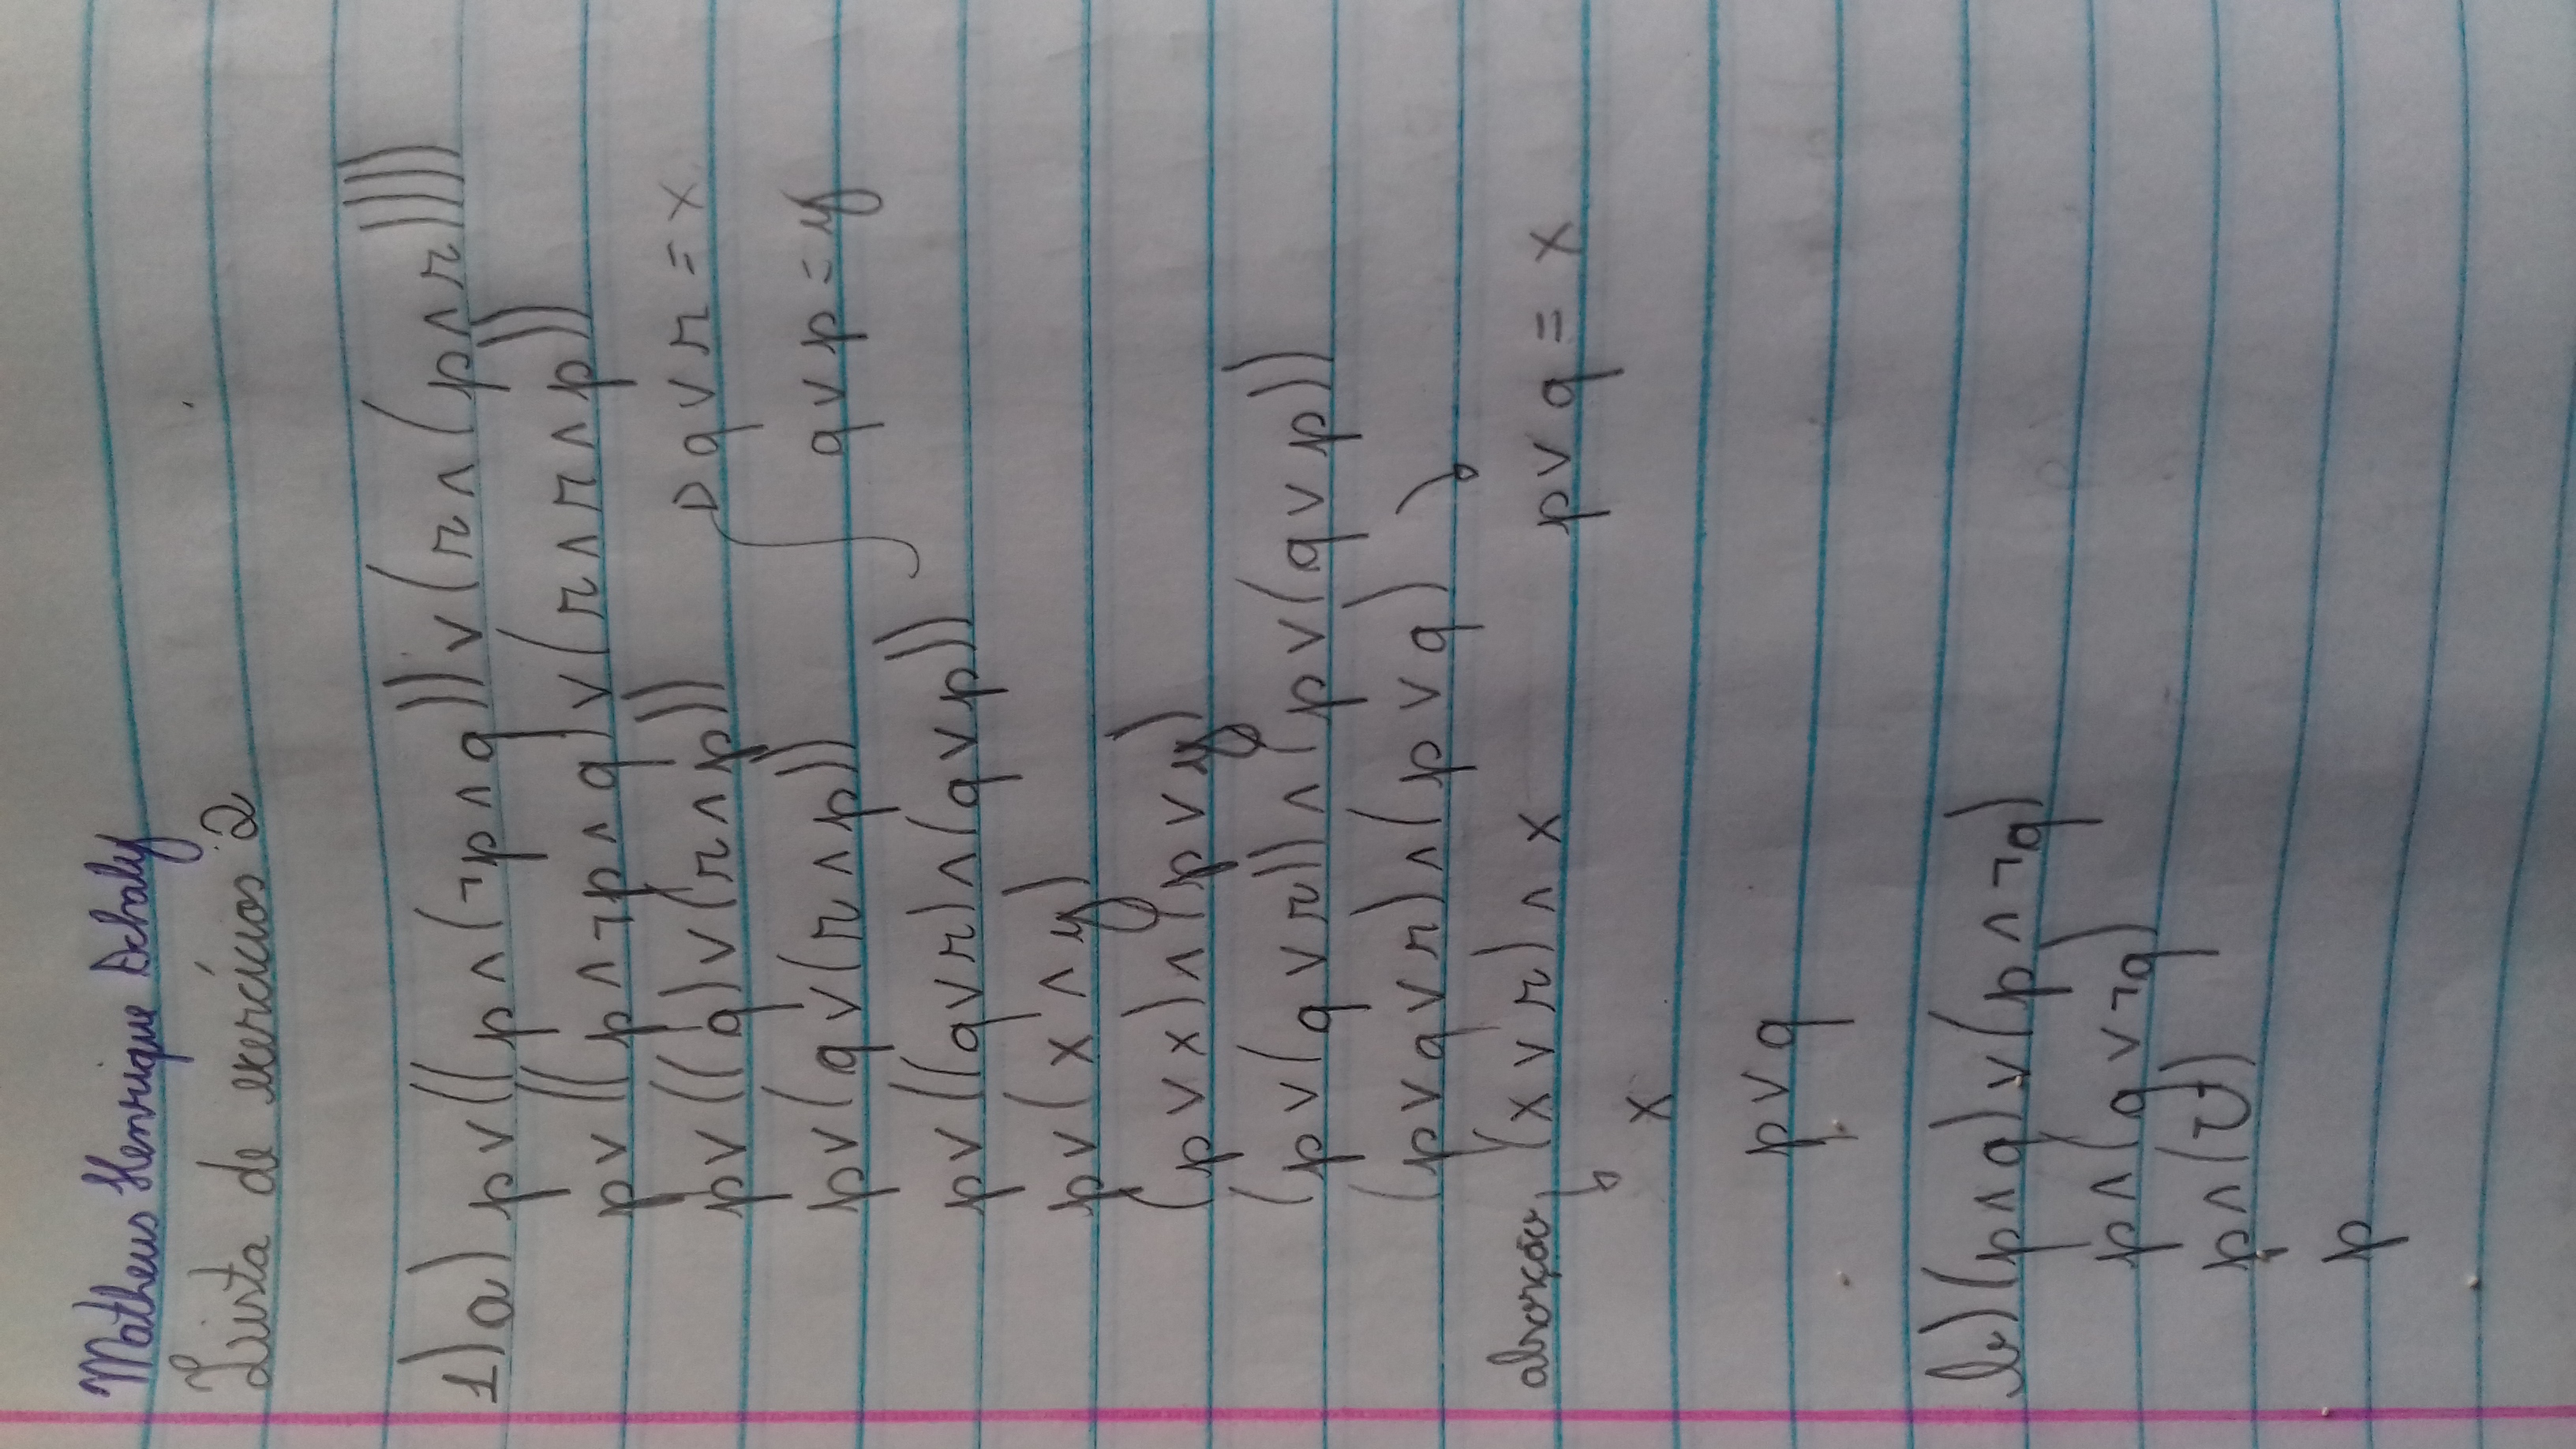 Matheus Henrique Schaly
Lista de exercícios 2
1)a) p∨((p∧(¬p∧q))∨(r∧(p∧r))))
p∨((p∧¬p∧q)∨(r∧r∧p))
p∨((q)∨(r∧p))
q∨r = x
p∨(q∨(r∧p))
q∨p = y
p∨((q∨r)∧(q∨p))
p∨(x∧y)
(p∨x)∧(p∨y)
(p∨(q∨r))∧(p∨(q∨p))
(p∨q∨r)∧(p∨q)
absorção (x∨r)∧x
p∨q = x
x
p∨q
b) (p∧q)∨(p∧¬q)
p∧(q∨¬q)
p∧(V)
p